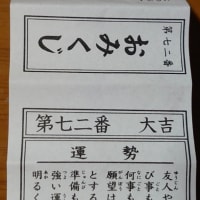 第七二番
おみくじ
第七二番 大吉
運勢
友人や
び事も
何事も
願望は
とする
準備も
強い運
明るく